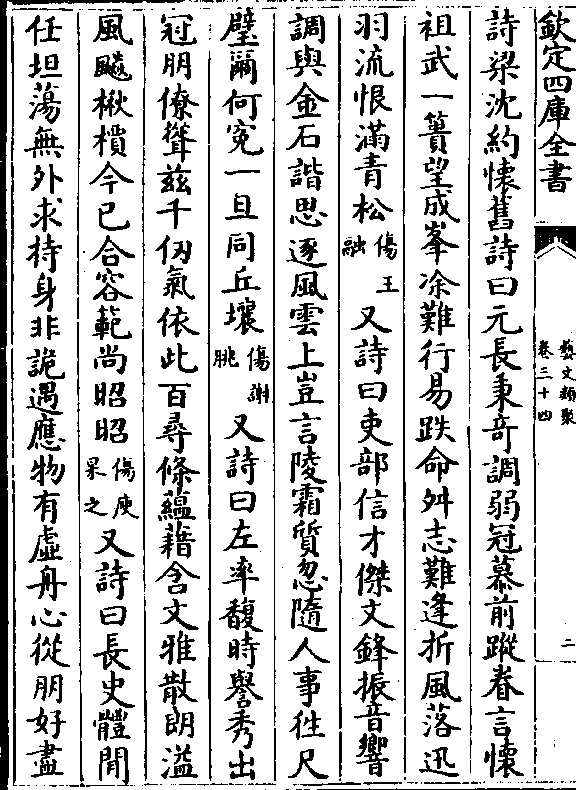 欽定四庫全書
藝文類聚
卷三十四
二
詩梁沈約懷舊詩曰元長秉竒調弱冠慕前蹤眷言懷
祖武一簣望成峯凃難行易跌命舛志難逢折風落迅
羽流恨滿青松傷王融又詩曰吏部信才傑文鋒振竒響
調與金石諧思逐風雲上豈言陵霜質忽隨人事徃尺
璧爾何寃一旦同丘壤傷謝朓又詩曰左率馥時譽秀出
冠朋僚聳兹千仭氣依此百尋條蘊藉含文雅散朗溢
風飈楸檟今已合容範尚昭昭傷庾杲之又詩曰長史體閒
任坦蕩無外求持身非詭遇應物有虛舟心從朋好盡